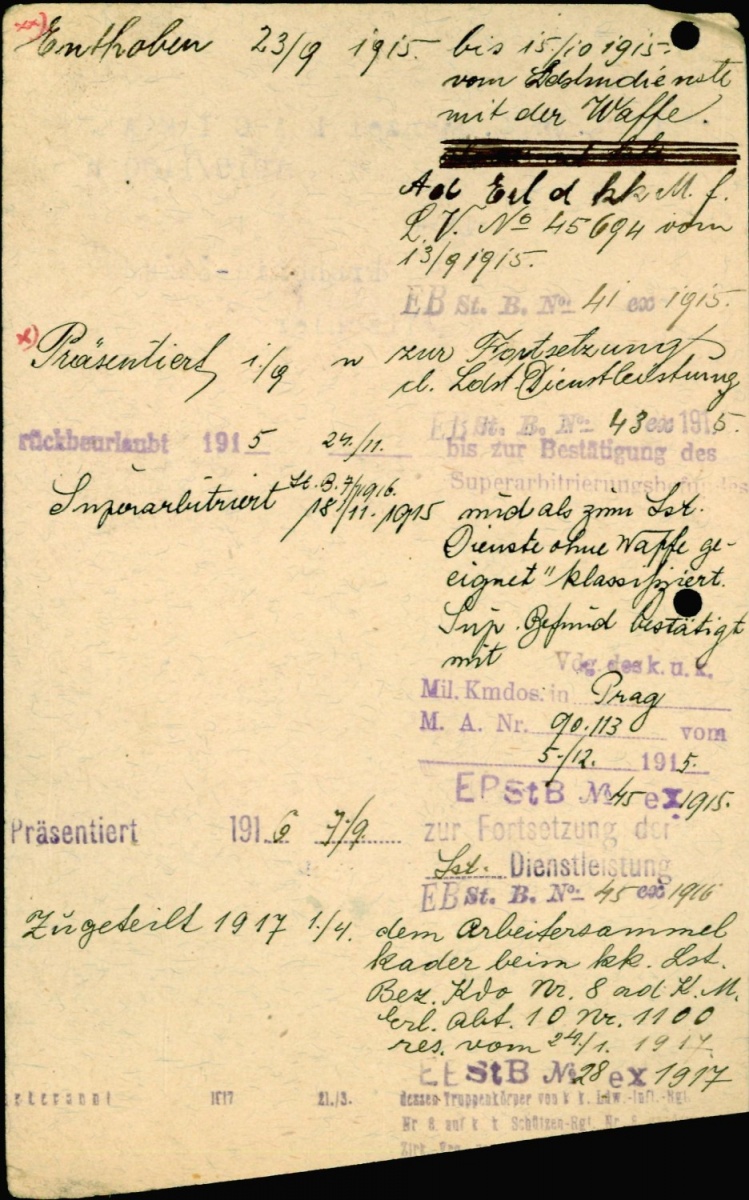 Enthoben 23/9 1915. bis 15/10 1915.
vom Ldstmdienste
mit der Waffe.
Ad Erl d kk M. f.
L. V. No 45694 vom
13/9 1915.
EB St. B. No. 41 ex 1915.
x) Präsentiert 1/9 zur Fortsetzung
d. Ldst. Dienstleistung
EB St. B. No. 43 ex 1915.
rückbeurlaubt 1915 24./11. bis zur Bestätigung des
Superarbitrierungsbefundes
St. B. 7/1916.
Superarbitriert 18/11. 1915 und als zum Lst.
Dienste ohne Waffe ge-
eignet" klassifiziert.
Sup. Befund bestätigt
mit Vdg. des k. u. k.
Mil. Kmdos. in Prag
M. A. Nr. 90.113 vom
5./12. 1915.
EPStB No 45 ex 1915.
Präsentiert 1916 7./9. zur Fortsetzung der
Lst. Dienstleistung
EB St. B. No. 45 ex 1916
Zugeteilt 1917 1./4. dem Arbeitersammel
kader beim kk. Lst.
Bez. Kdo Nr. 8 ad K. M.
Erl. Abt. 10 Nr. 1100
res. vom 24./1. 1917.
StB No 28 ex 1917
1917 21./3. dessen Truppenkörper von k k. Ldw.-Inft.-Rgt.
Nr 8. auf k k Schützen-Rgt. Nr 8